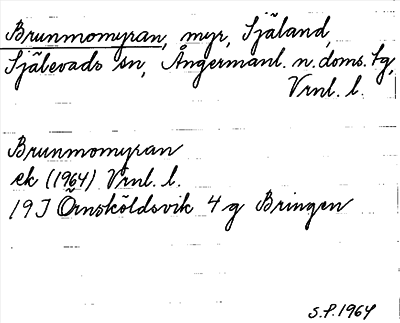 Brunmomyran, myr, Själand,
Själevads sn, Ångermanl. n. doms. tg,
Vrnl. l.
Brunmomyran
ek (1964) Vrnl. l.
19J Örnsköldsvik 4 g Bringen
S.P. 1964